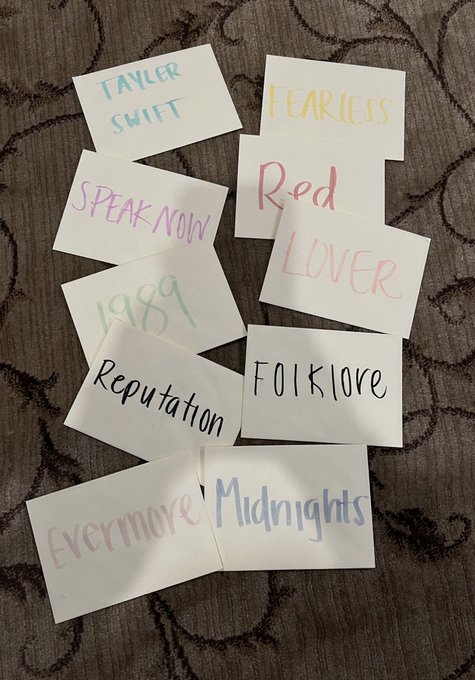 TAYLER
SWIFT
FEARLESS
SPEAK NOW
Red
LOVER
1989
Reputation
Folklore
Evermore
Midnights